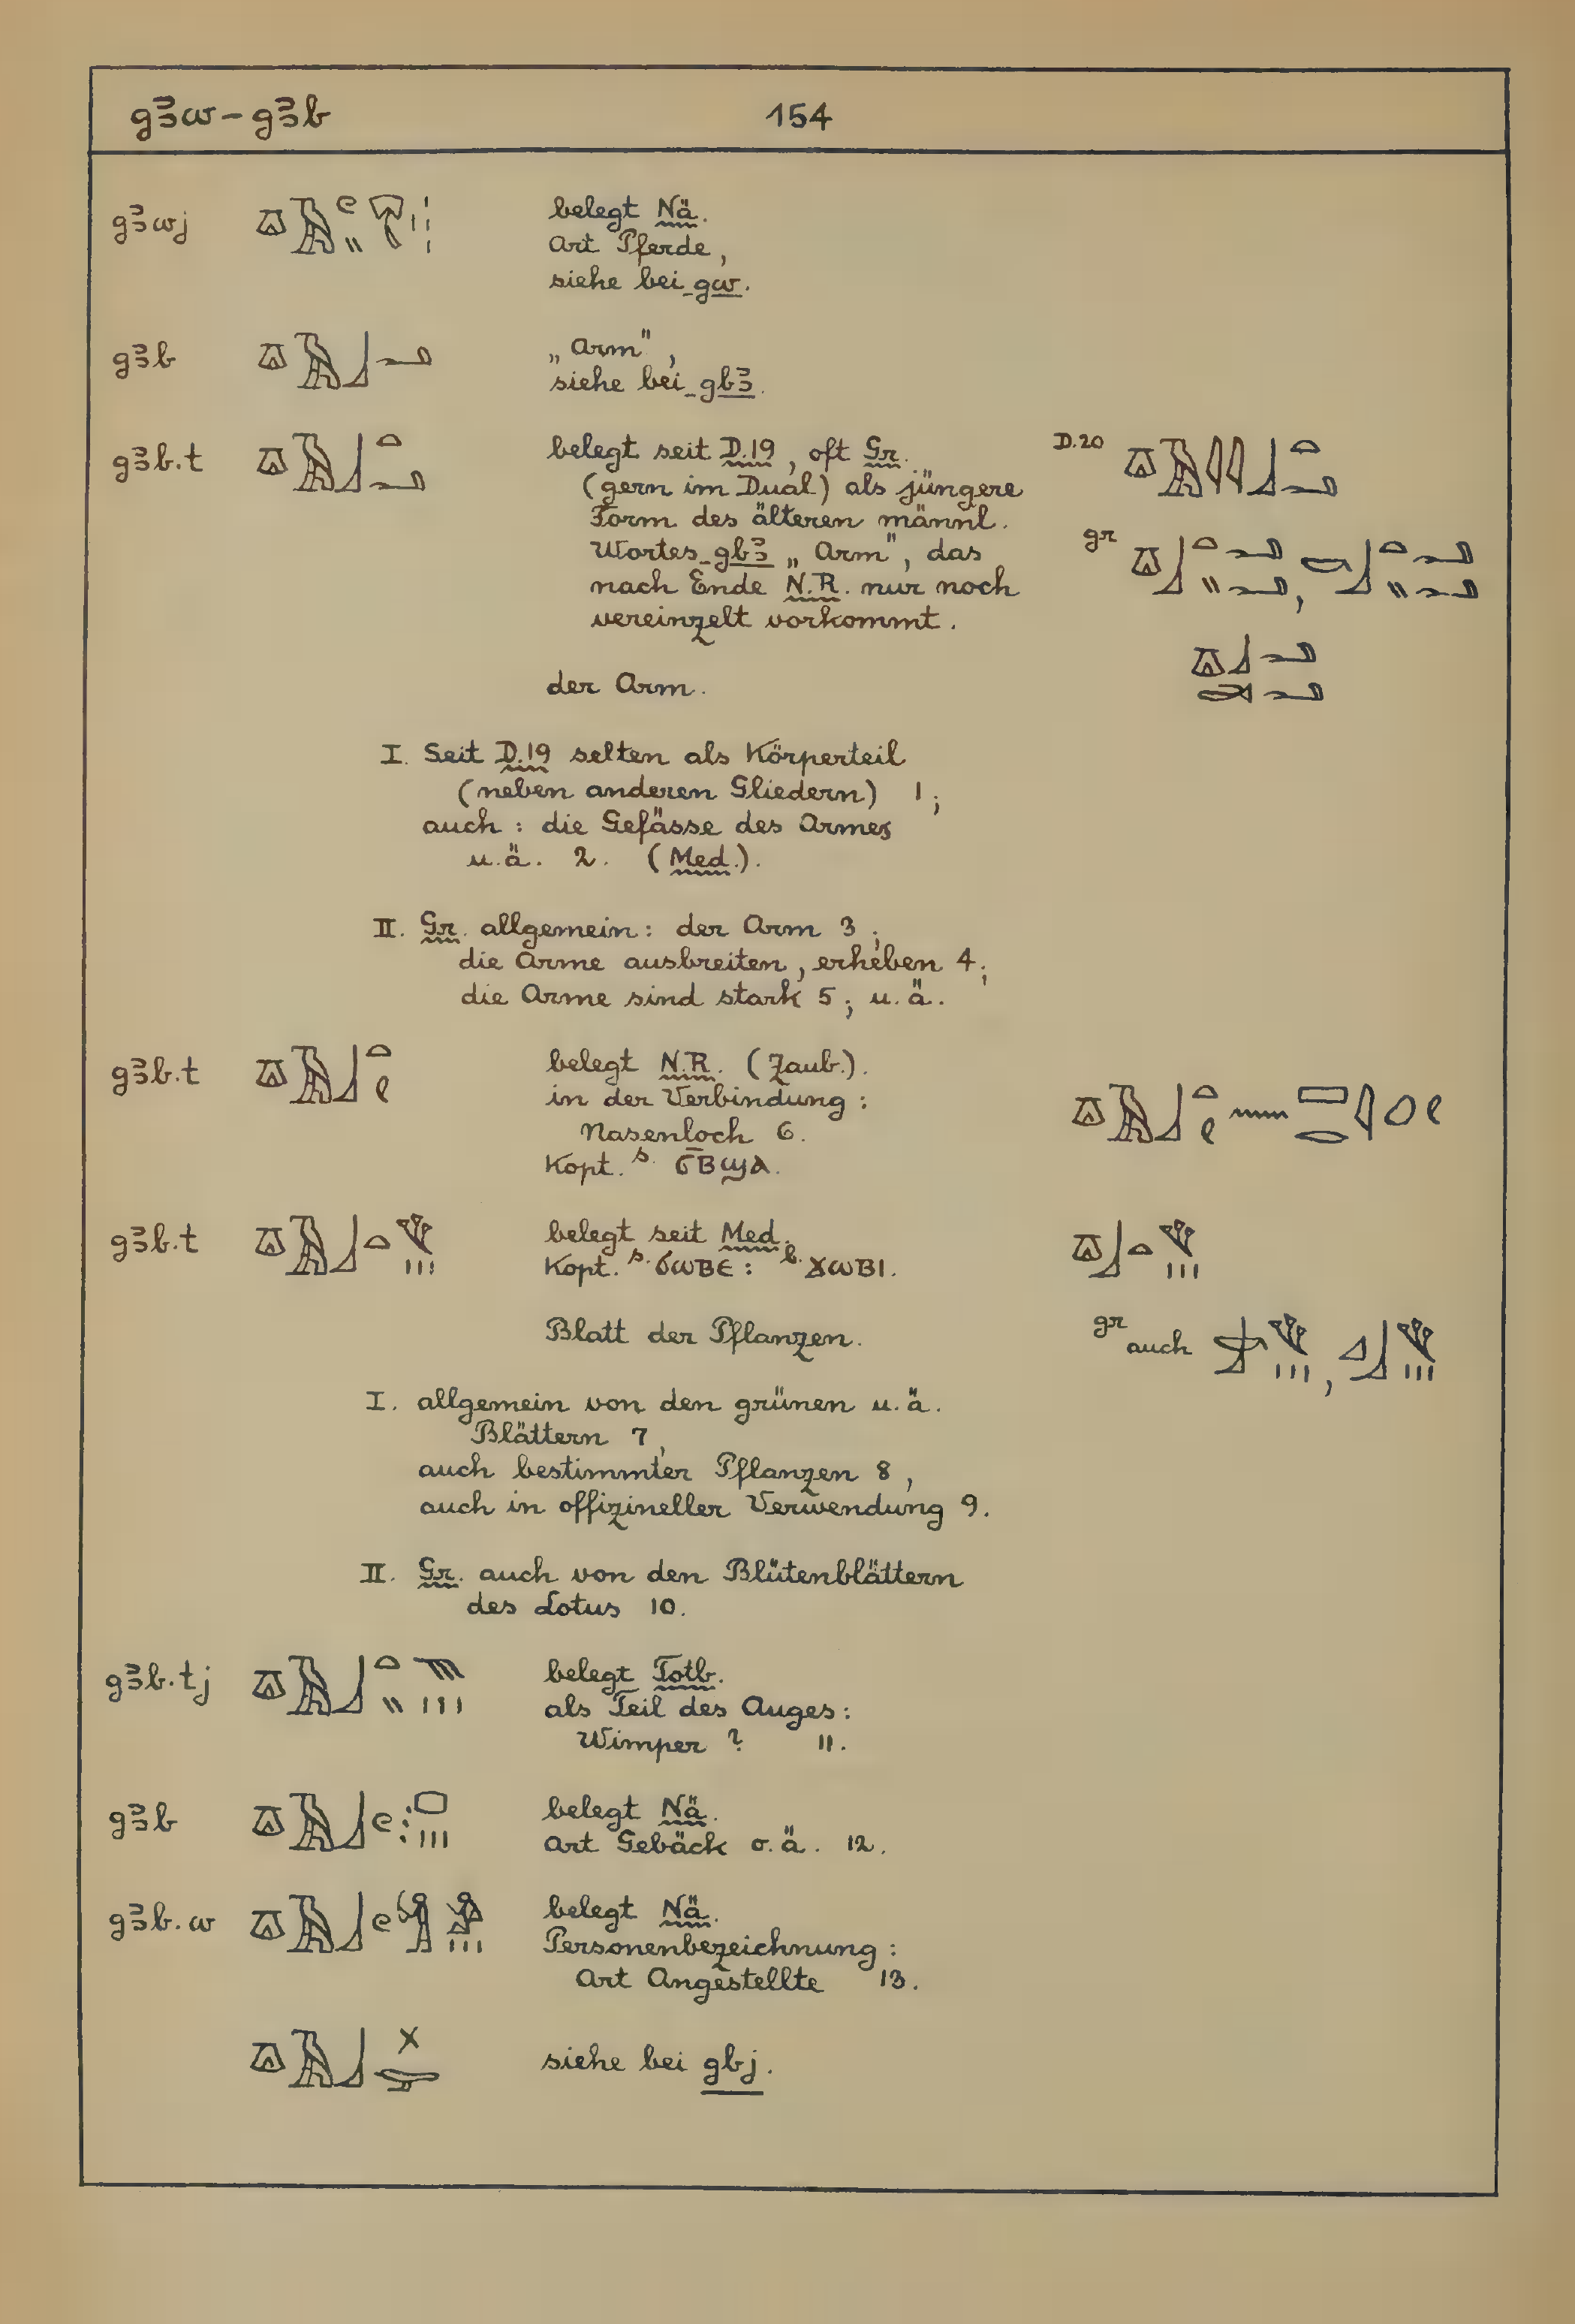 gꜣw – gꜣb 154
gꜣwj belegt Nä.
Art Pferde,
siehe bei gw.
gꜣb „Arm",
siehe bei gbꜣ.
gꜣb.t belegt seit D.19, oft Gr. D.20
(gern im Dual) als jüngere
Form des älteren männl.
Wortes gbꜣ „Arm", das gr
nach Ende N.R. nur noch
vereinzelt vorkommt.
der Arm.
I. Seit D.19 selten als Körperteil
(neben anderen Gliedern) 1;
auch: die Gefässe des Armes
u.ä. 2. (Med.).
II. Gr. allgemein: der Arm 3;
die Arme ausbreiten, erheben 4;
die Arme sind stark 5; u.ä.
gꜣb.t belegt N.R. (Zaub.).
in der Verbindung:
Nasenloch 6.
Kopt. s. ϭⲃ̅ϣⲁ.
gꜣb.t belegt seit Med.
Kopt. s. ϭⲱⲃⲉ: b. ϫⲱⲃⲓ.
Blatt der Pflanzen. gr auch
I. allgemein von den grünen u.ä.
Blättern 7,
auch bestimmter Pflanzen 8,
auch in offizineller Verwendung 9.
II. Gr. auch von den Blütenblättern
des Lotus 10.
gꜣb.tj belegt Totb.
als Teil des Auges:
Wimper? 11.
gꜣb belegt Nä.
Art Gebäck o.ä. 12.
gꜣb.w belegt Nä.
Personenbezeichnung:
Art Angestellte 13.
siehe bei gbj.